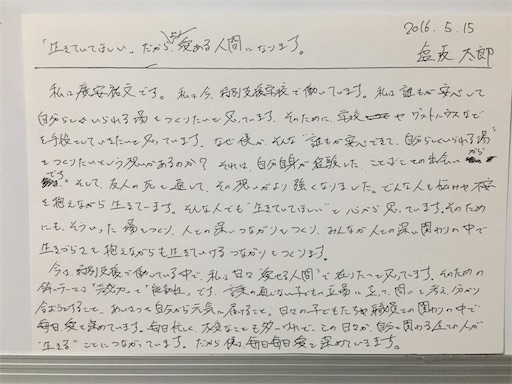 2016.5.15
「生きていてほしい」だから、愛ある人間になります。
太郎
です。私は今、特別支援学校で働いています。私は誰もが安心して
自分らしくいられる場をつくりたいと思っています。そのために、学校や
をしていきたいと思っています。なぜ僕が、そんな“誰もが安心できて、自分らしくいられる場”
をつくりたいという思いがあるのか？それは、自分自身が経験した、子どもとの出会いから
です。そして、友人の死を通して、その思いがより強くなりました。どんな人も悩みや不安
を抱えながら生きています。そんな人でも“生きていてほしい”と心から思っています。そのため
にも、そういった場をつくり、人との深いつながりをつくり、みんなが人との深い関わりの中で
生きづらさを抱えながらも生きていけるつながりをつくります。
今は、特別支援で働いている中で、私は日々“愛せる人間”で在りたいと思っています。そのための
テーマは「」と「」です。言葉の子どもの立場に立って、聞いて、考え、分かり
合おうとすること、あいさつを自分から元気に届けること。日々の子どもたちや職員との関わりの中で
毎日、愛を深めています。毎日忙しく、大変なことも多いけれど、この日々が、自分と関わる全ての人が
“生きる”ことにつながっています。だから僕は毎日毎日愛を深めていきます。